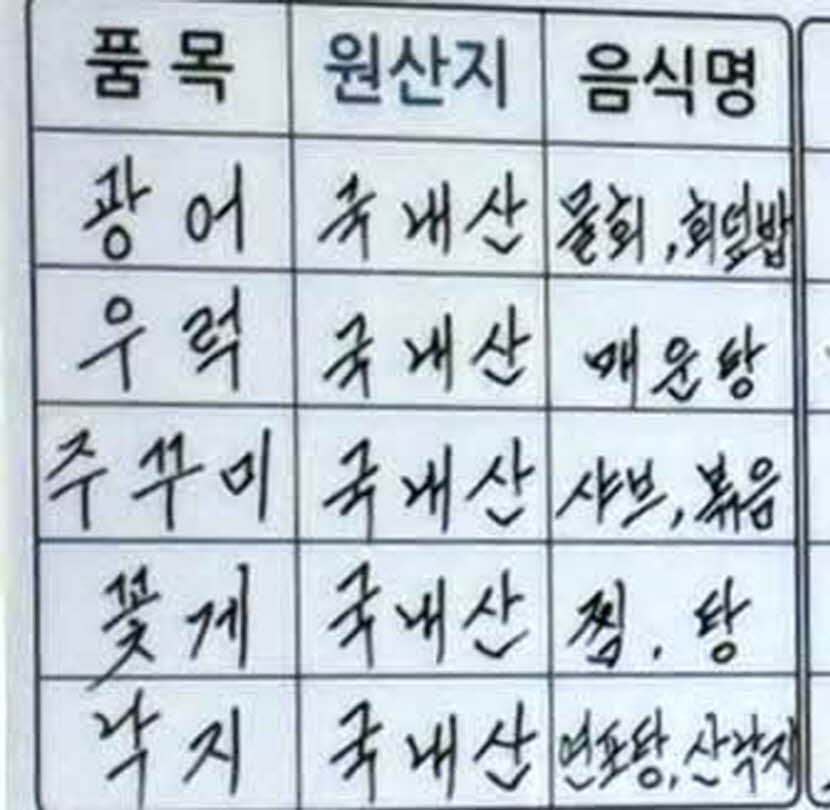 품목 원산지 음식명
광어 국내산 물회,회덮밥
우럭 국내산 매운탕
주꾸미 국내산 샤브,볶음
꽃게 국내산 찜.탕
낙지 국내산 연포탕,산낙지